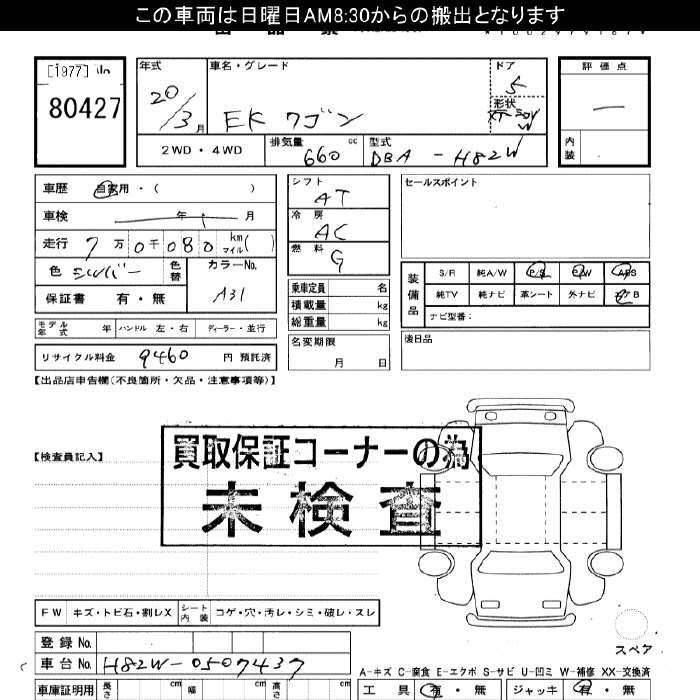 この車両は日曜日AM8:30からの搬出となります
[1977]
80427
年式
20/3月
車名・グレード
EK ワゴン
ドア
5
形状
評価点
内装
2WD・4WD
排気量
660 cc
型式
DBA-H82W
車歴
自家用・( )
車検
年 月
走行
7万0千080 km マイル( )
色
シルバー
色替
カラーNo.
A31
保証書
有・無
シフト
AT
冷房
AC
燃料
G
乗車定員 名
積載量 kg
総重量 kg
名変期限
月 日
セールスポイント
装備品
S/R 純A/W P/S P/W ABS
純TV 純ナビ 革シート 外ナビ エアB
ナビ型番:
後日品
モデル年式 年
ハンドル 左・右
ディーラー・並行
リサイクル料金 9460 円 預託済
【出品店申告欄(不良箇所・欠品・注意事項等)】
【検査員記入】
買取保証コーナーの為
未検査
FW キズ・トビ石・割レX
シート内装 コゲ・穴・汚レ・シミ・破レ・スレ
スペア
登録 No.
車台 No. H82W-0507437
A-キズ C-腐食 E-エクボ S-サビ U-凹ミ W-補修 XX-交換済
車庫証明用
長さ cm 幅 cm 高さ cm
工具 有・無
ジャッキ 有・無